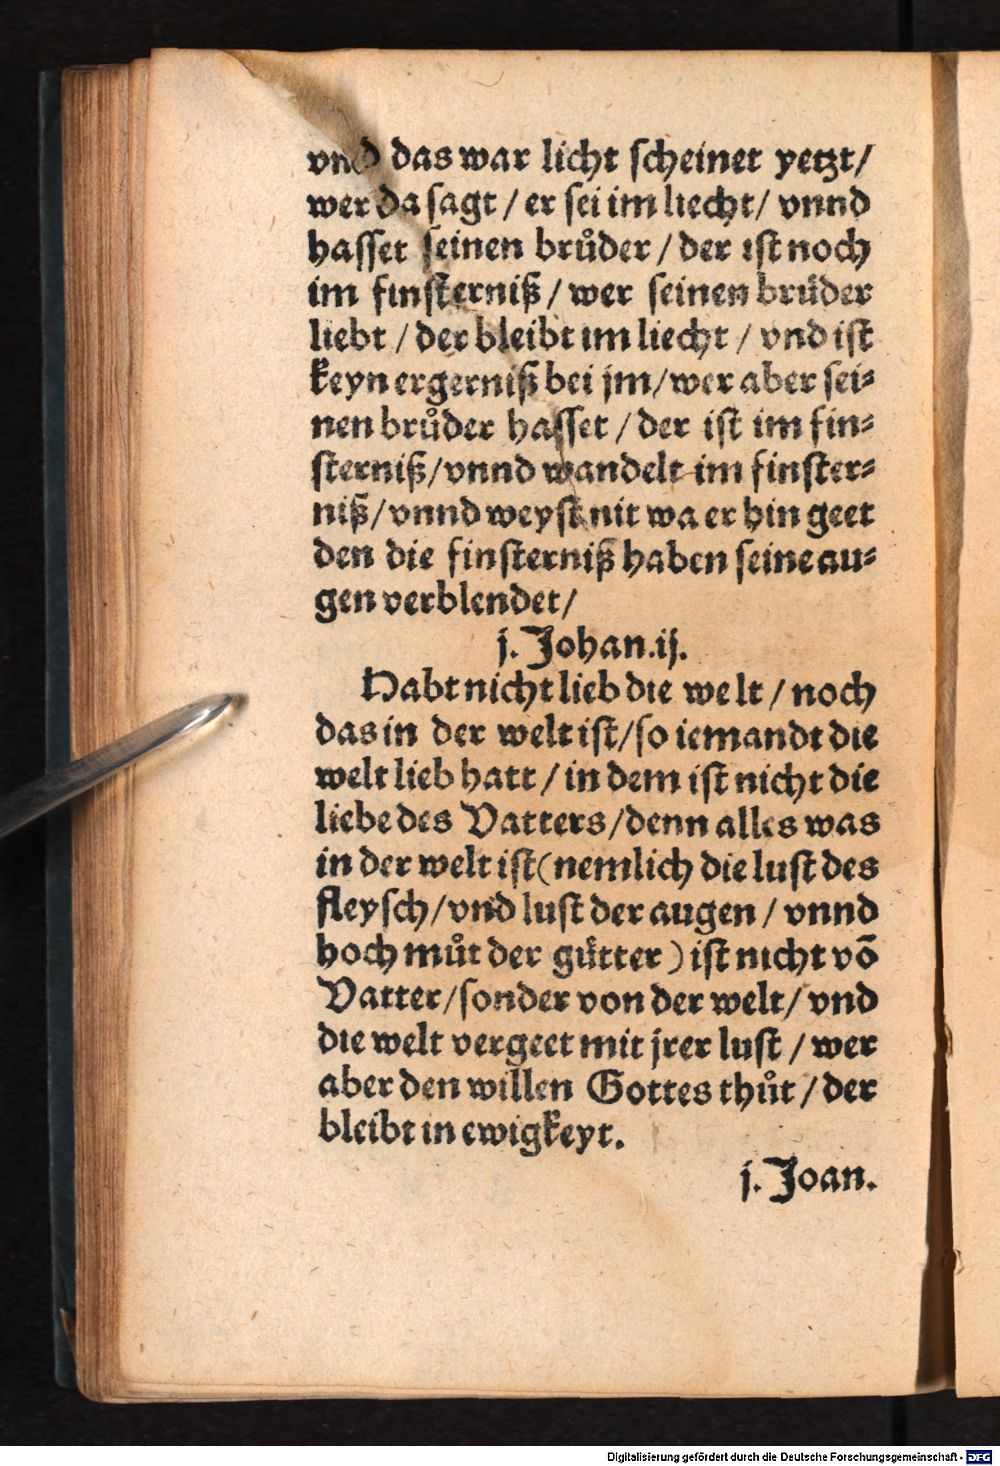 vnd das war licht scheinet yetzt/
wer da sagt / er sei im liecht/ vnnd
hasset seinen brůder / der ist noch
im finsterniß / wer seinen brůder
liebt / der bleibt im liecht / vnd ist
keyn ergerniß bei jm/wer aber sei⸗
nen brůder hasset / der ist im fin⸗
sterniß/vnnd wandelt im finster⸗
niß/vnnd weyst nit wa er hin geet
den die finsterniß haben seine au⸗
gen verblendet/
j. Johan.ij.
Habt nicht lieb die welt / noch
das in der welt ist/so iemandt die
welt lieb hatt / in dem ist nicht die
liebe des Vatters/denn alles was
in der welt ist(nemlich die lust des
fleysch/vnd lust der augen / vnnd
hoch můt der gůtter) ist nicht vō
Vatter/sonder von der welt/ vnd
die welt vergeet mit jrer lust / wer
aber den willen Gottes thůt / der
bleibt in ewigkeyt.
j. Joan.
Digitalisierung gefördert durch die Deutsche Forschungsgemeinschaft - DFG